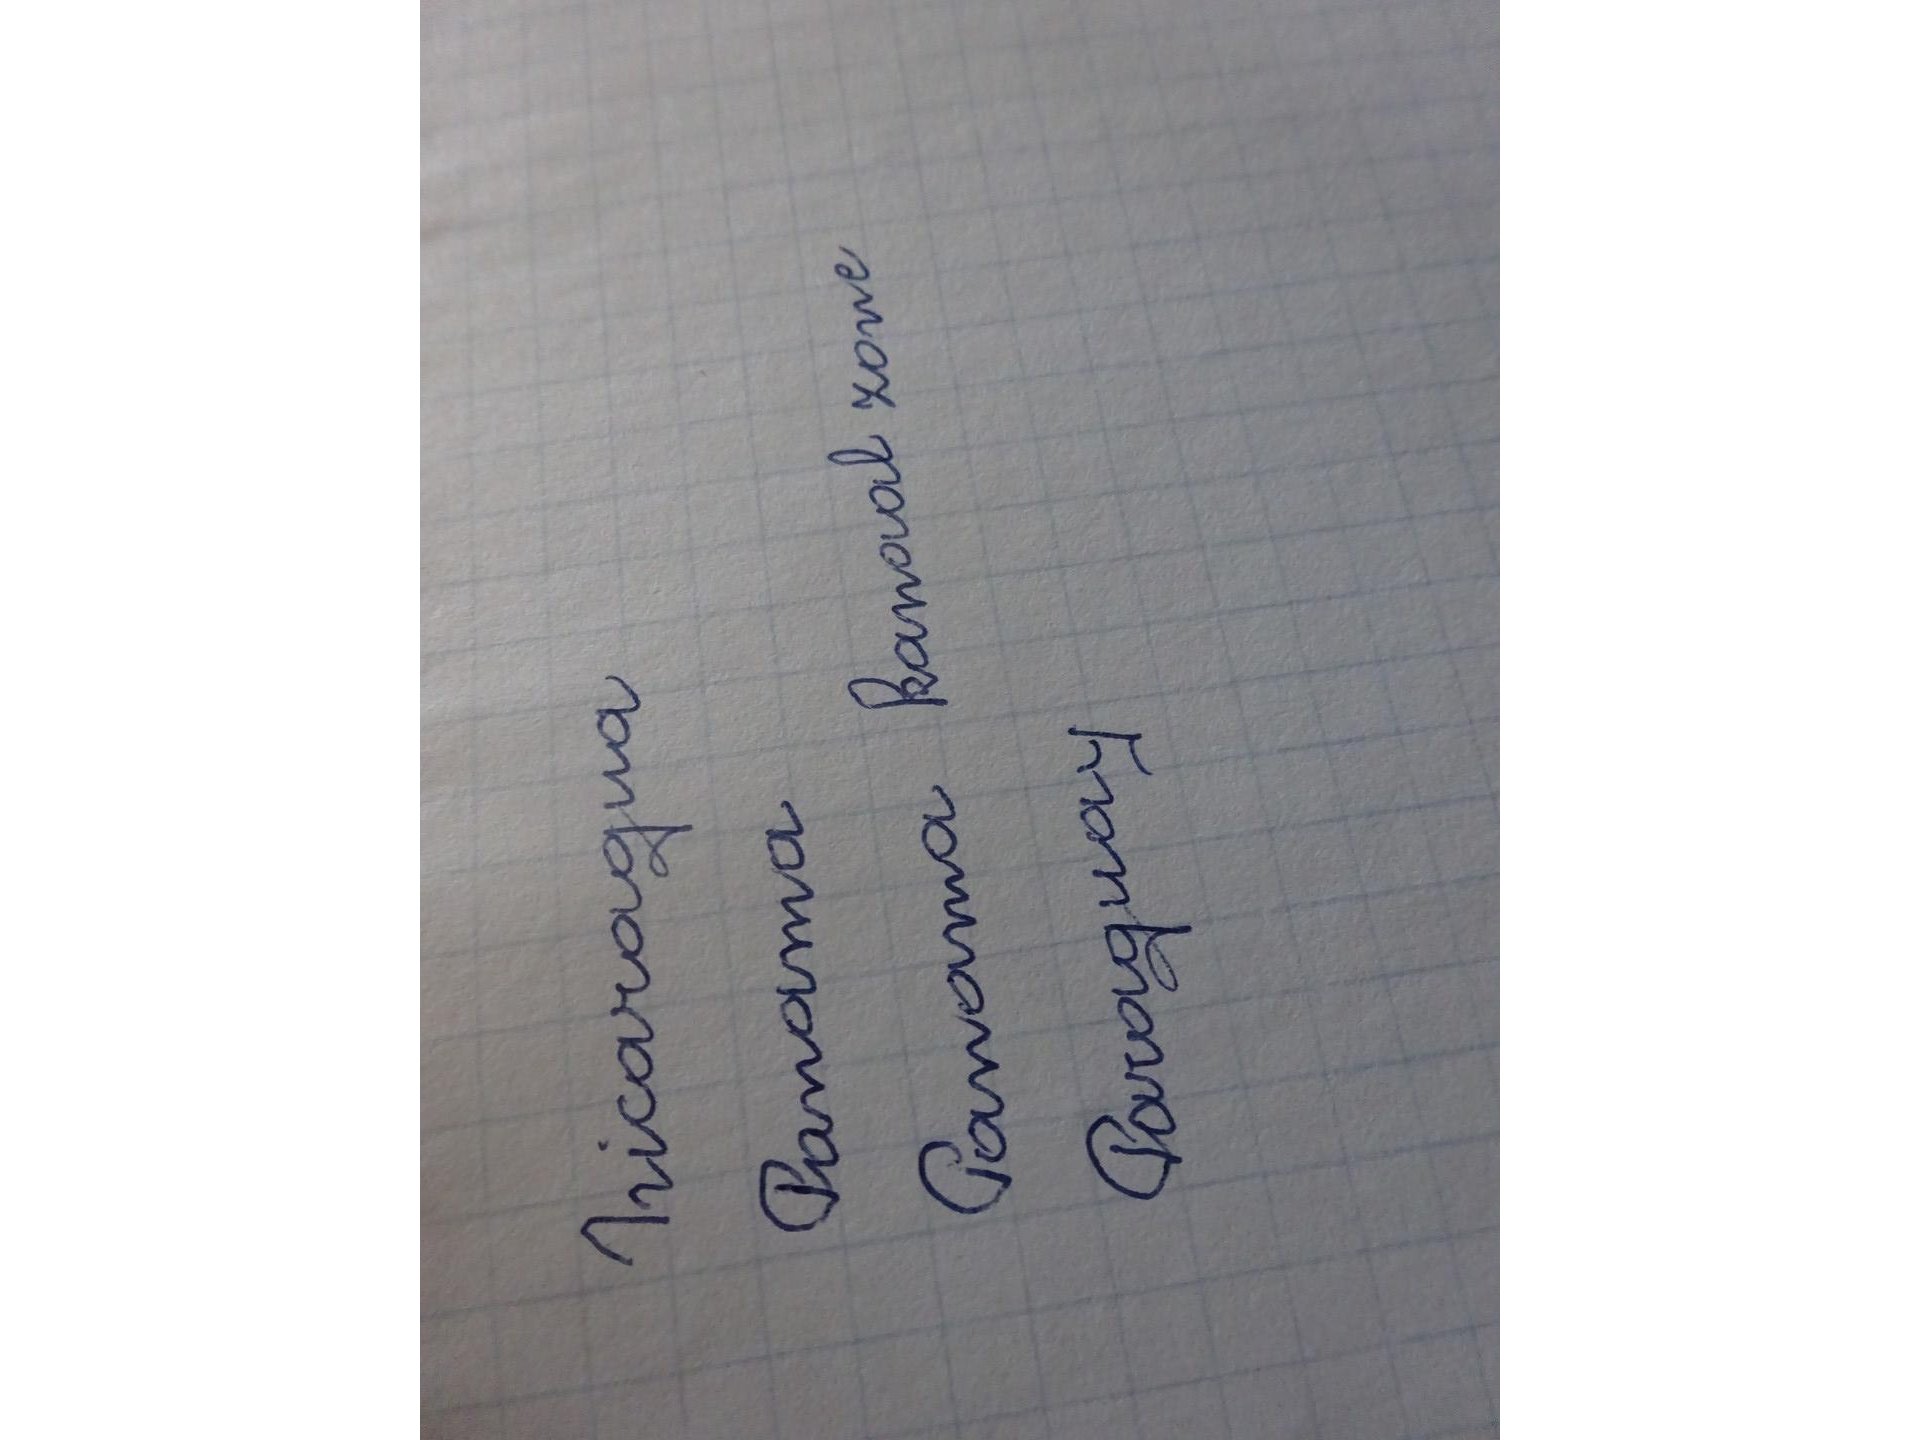 Nicaragua
Panama
Panama kanaal zone
Paraguay